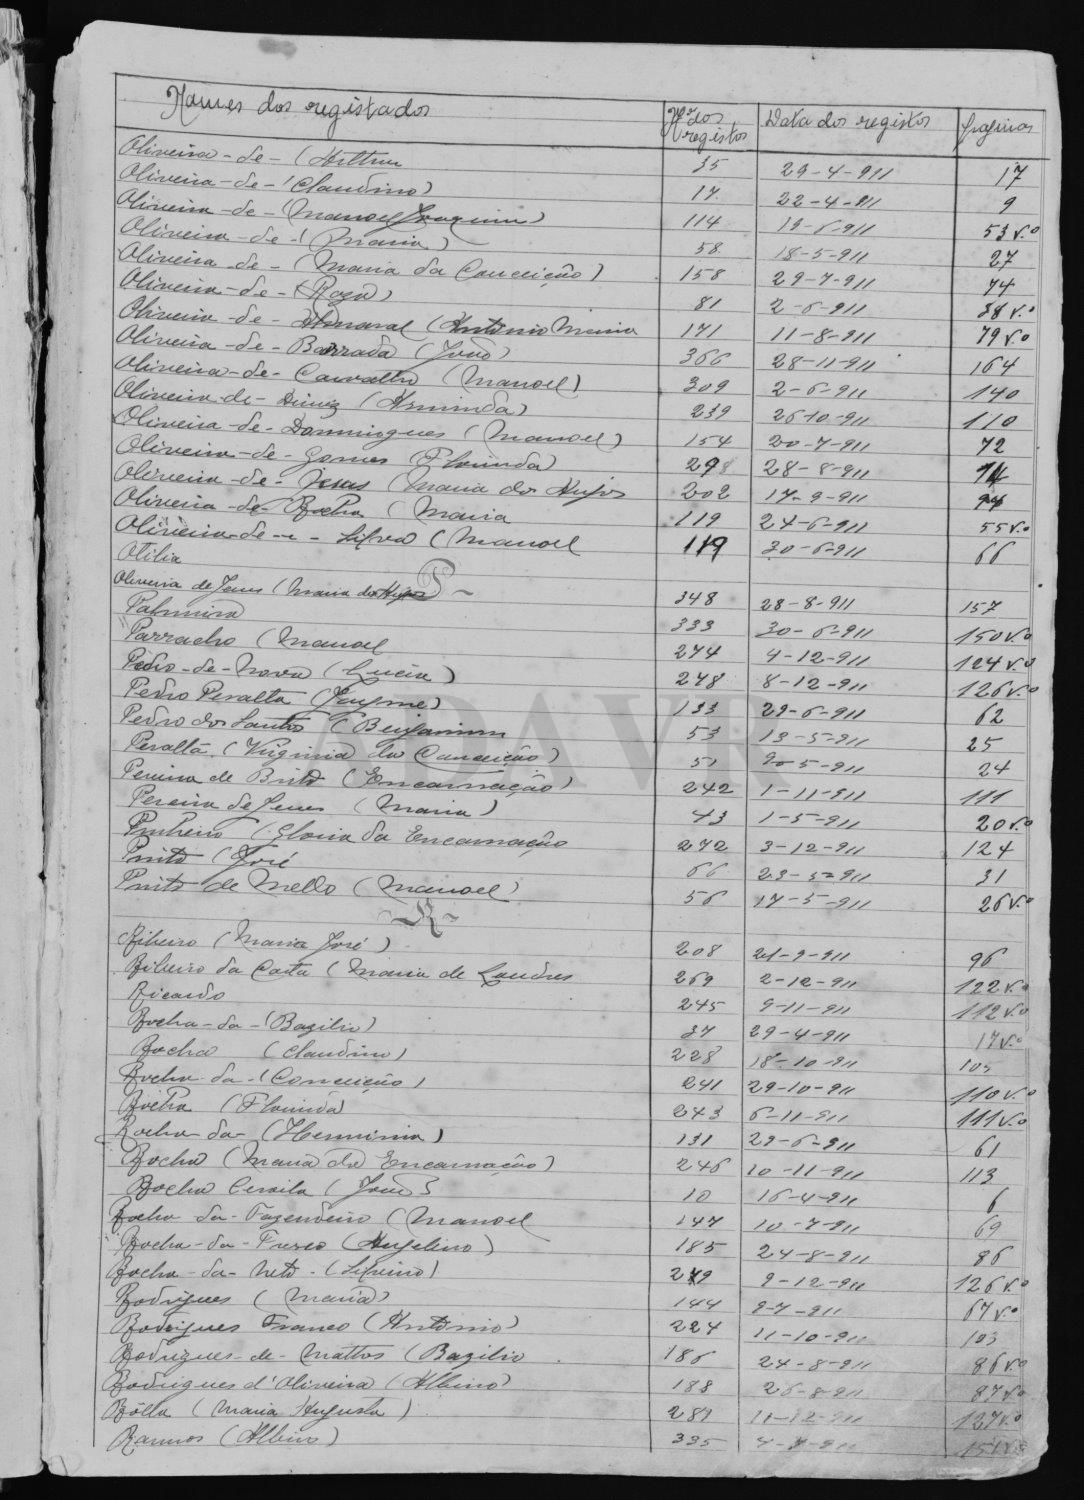 Nomes dos registados | Nos dos registos | Data dos registos | Paginas
Oliveira-de-(Arthur | 35 | 29-4-911 | 17
Oliveira-de-(Claudino) | 17 | 22-4-911 | 9
Oliveira-de-(Manoel Joaquim) | 114 | 19-6-911 | 53 v.o
Oliveira-de-(Maria) | 58 | 18-5-911 | 27
Oliveira-de-(Maria da Conceição) | 158 | 29-7-911 | 74
Oliveira-de-(Roza) | 81 | 2-6-911 | 38 v.o
Oliveira-de-Amaral (Antonio Maria | 171 | 11-8-911 | 79 v.o
Oliveira-de-Barrada (João) | 366 | 28-11-911 | 164
Oliveira-de-Carvalho (Manoel) | 309 | 2-6-911 | 140
Oliveira-de-Diniz (Arminda) | 239 | 26-10-911 | 110
Oliveira-de-Dommigues (Manoel) | 154 | 20-7-911 | 72
Oliveira-de-Gomes (Florinda) | 298 | 28-8-911
Oliveira-de-Jesus (Maria dos Anjos | 202 | 17-9-911 | 94
Oliveira-de-Rocha (Maria | 119 | 24-6-911 | 55 v.o
Oliveira-de-Silva (Manoel | 119 | 30-6-911 | 66
Otilia
P
Oliveira de Jesus (Maria dos Anjos | 348 | 28-8-911 | 157
Palmira | 333 | 30-6-911 | 150 v.o
Parracho (Manoel | 274 | 4-12-911 | 124 v.o
Pedro-de-Nova (Lucia) | 278 | 8-12-911 | 126 v.o
Pedro Peralta (Jayme) | 133 | 29-6-911 | 62
Pedro dos Santos (Benjamim | 53 | 13-5-911 | 25
Peralta (Virginia da Conceição) | 51 | 5-911 | 24
Pereira de Brito (Encarnação) | 242 | 1-11-911 | 111
Pereira de Jesus (Maria) | 43 | 1-5-911 | 20 v.o
Pinheiro (Gloria da Encarnação | 272 | 3-12-911 | 124
Pinto (José | 66 | 23-5-911 | 31
Pinto de Mello (Manoel) | 56 | 17-5-911 | 26 v.o
-R-
Ribeiro (Maria José) | 208 | 21-9-911 | 96
Ribeiro da Costa (Maria de Lourdes | 269 | 2-12-911 | 122 v.o
Ricardo | 245 | 9-11-911 | 112 v.o
Rocha-da-(Bazilio) | 37 | 29-4-911 | 17 v.o
Rocha (Claudino) | 228 | 18-10-911 | 105
Rocha-da-(Conceição) | 241 | 29-10-911 | 110 v.o
Rocha (Florinda) | 243 | 6-11-911 | 111 v.o
Rocha-da-(Herminia) | 131 | 29-6-911 | 61
Rocha (Maria da Encarnação) | 246 | 10-11-911 | 113
Rocha (João) | 10 | 16-4-911 | 6
Rocha-da-Fazendeiro (Manoel | 147 | 10-7-911 | 69
Rocha-da-(Angelino) | 185 | 24-8-911 | 86
Rocha-da-Neto-(Silvino) | 279 | 9-12-911 | 126 v.o
Rodrigues (Maria) | 144 | 9-7-911 | 67 v.o
Rodrigues Franco (Antonio) | 224 | 11-10-911 | 103
Rodrigues-de-Mattos (Bazilio | 186 | 24-8-911 | 86 v.o
Rodrigues d'Oliveira (Albino) | 188 | 26-8-911 | 87 v.o
Rolla (Maria Augusta) | 281 | 11-12-911 | 127 v.o
Ramos (Albino) | 335 | 151 v.o
DAVR